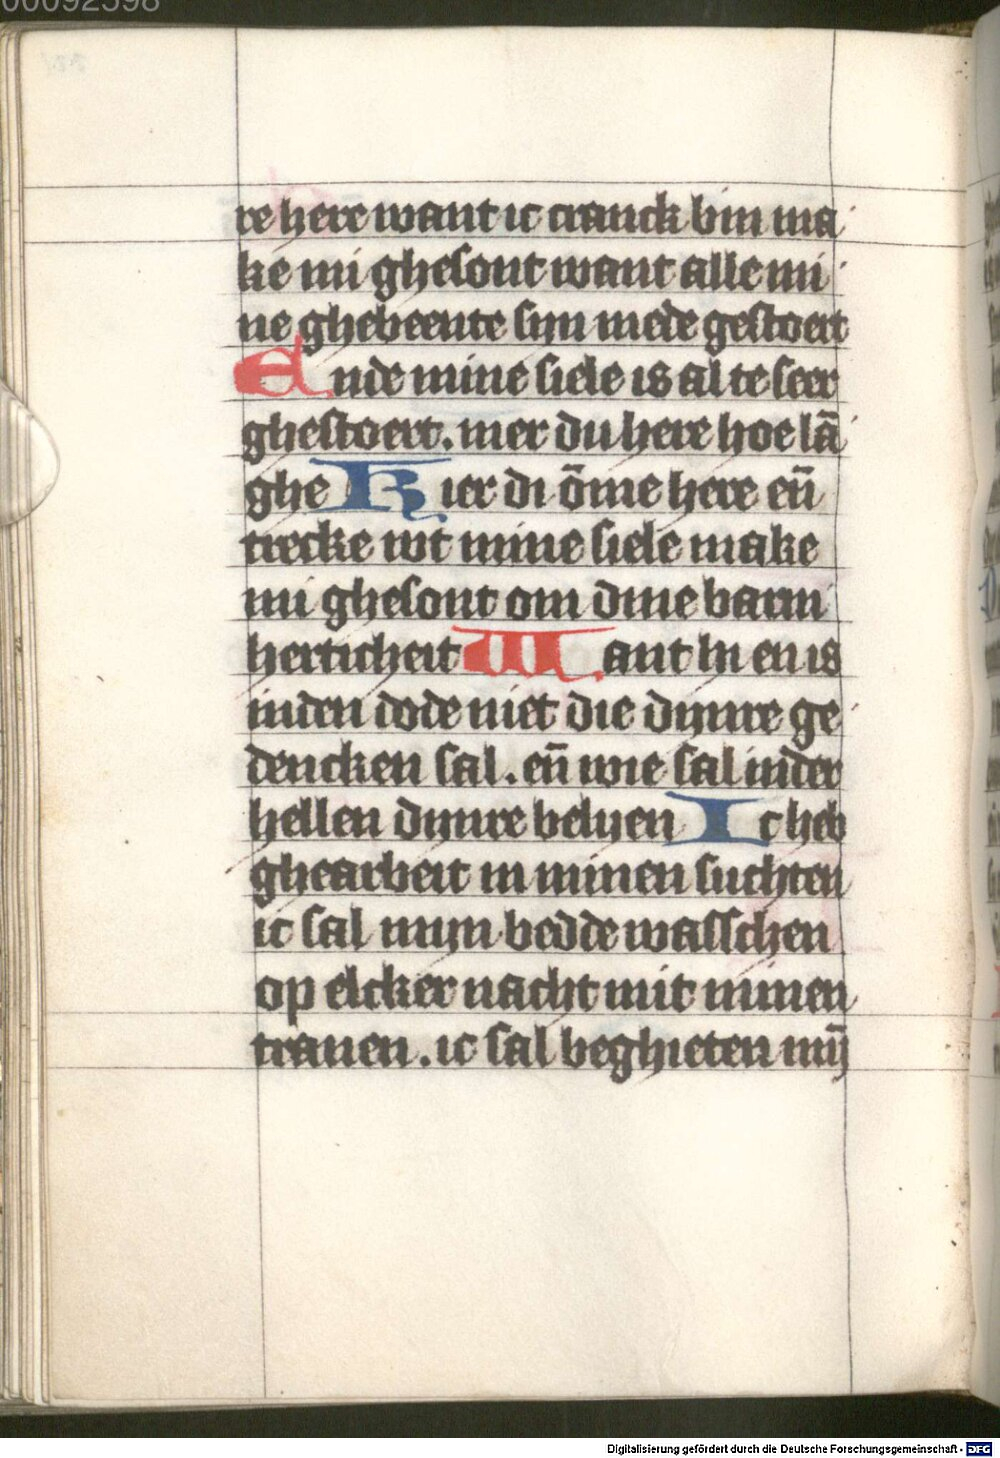 00092598
re here want ic cranck bin ma
ke mi ghesont want alle mi
ne ghebeente sijn mede gestoert
Ende mine siele is al te seer
ghestoert. mer du here hoe lā
ghe Kier di ōme here eñ
trecke wt mine siele make
mi ghesont om dine barm
herticheit Want hi en is
inden dode niet die dijnre ge
dencken sal. eñ wie sal inder
hellen dijnre belyen Ic heb
ghearbeit in minen suchten
ic sal mijn bedde wasschen
op elcker nacht mit minen
tranen. ic sal beghieten mij̄
Digitalisierung gefördert durch die Deutsche Forschungsgemeinschaft - DFG